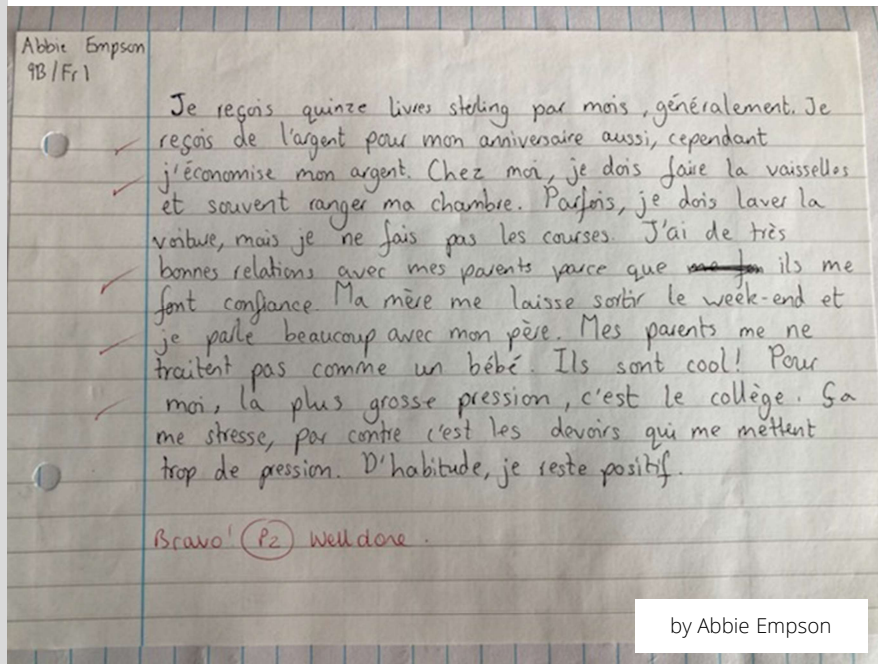 Abbie Empson
9B/Fr1
Je reçois quinze livres sterling par mois, généralement. Je
reçois de l'argent pour mon anniversaire aussi, cependant
j'économise mon argent. Chez moi, je dois faire la vaisselles
et souvent ranger ma chambre. Parfois, je dois laver la
voiture, mais je ne fais pas les courses. J'ai de très
bonnes relations avec mes parents parce que ils me
font confiance. Ma mère me laisse sortir le week-end et
je parle beaucoup avec mon père. Mes parents me ne
traitent pas comme un bébé. Ils sont cool! Pour
moi, la plus grosse pression, c'est le collège. Ça
me stresse, par contre c'est les devoirs qui me mettent
trop de pression. D'habitude, je reste positif.
Bravo! P2 Well done.
by Abbie Empson